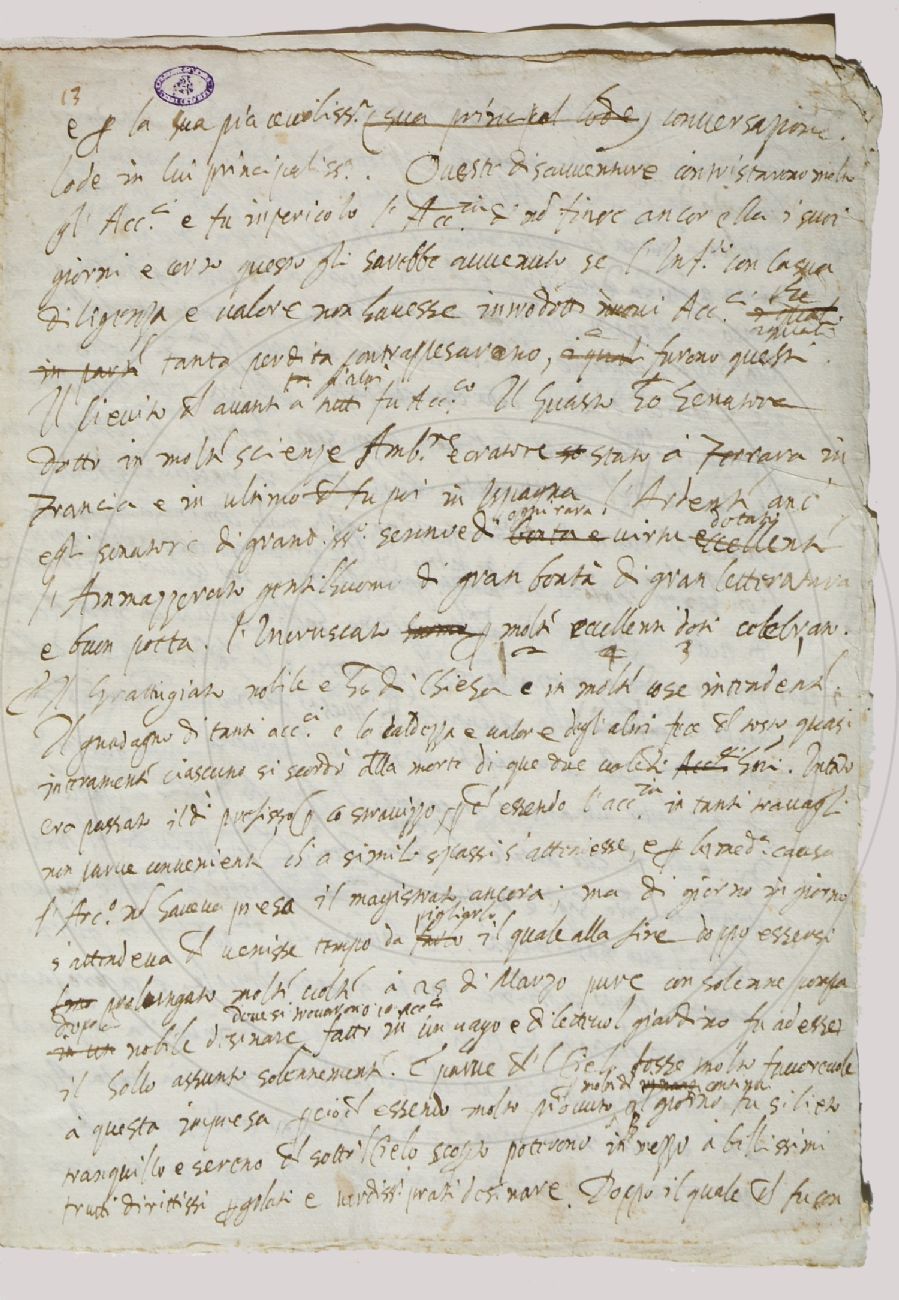 13
e p la sua piacevoliss.ª (sua principal lode) conversazione.
lode in lui principaliss.ª. Queste disavventure contristarono molto
gl' Acc.ci e fu in pericolo l' Acc.ia di nõ finire ancor ella i suoi
giorni e certo questo gli sarebbe avvenuto se l' Inf.to con la sua
diligenza e valore non havesse introdotti nuovi Acc.ci che
i quali
in parte tanta perdita contrappesarono, i quali furono questi.
d'altri
Il lievito avanti a tutti fu Acc.co Il Guasto Senatore
dotto in molte scienze Amb.re e oratore stato à Ferrara in
Francia e in ultimo fu poi in Ispagna l' Ardente anc'
ogni rara dotasi
egli senatore di grandiss.º senno e di bontà e virtu eccellente
l' Ammazzerato gentilhuomo di gran bontà di gran letteratura
e buon poeta. l' Incruscato huomo p molte eccellenti doti celebrato.
1 2 4 3
Il Grattugiato nobile e di Chiesa e in molte cose intendente.
Il guadagno di tanti acc.ci e la caldezza e valore degli altri fece tosto quasi
interamente ciascuno si scordò della morte di que due Acc.ci. Intanto
era passato il dì prefisso p lo stravizzo, essendo l' acc.ia in tanti travagli
non parve conveniente ch' a simili spassi s' attenesse, e p la med.ª causa
l' Arc.º nõ haveva preso il magistrato ancora; ma di giorno in giorno
pigliarlo
s' attendeva venisse tempo da farlo il quale alla fine doppo essersi
prolungato molte volte à 25 di Marzo pure con solenne pompa
dopo dove si trovarono
in un nobile desinare fatto in un vago e dilettevol giardino fu ad esse
il Sollo assunto solennemente. E parve ch' il Cielo fosse molto favorevole
à questa impresa, essendo molto piovuto il giorno fu sì lieto
tranquillo e sereno sott' il Cielo scoperto poterono in mezzo à bellissimi
frutti dirittissi pgolati e verdissi prati desinare. Doppo il quale fu con